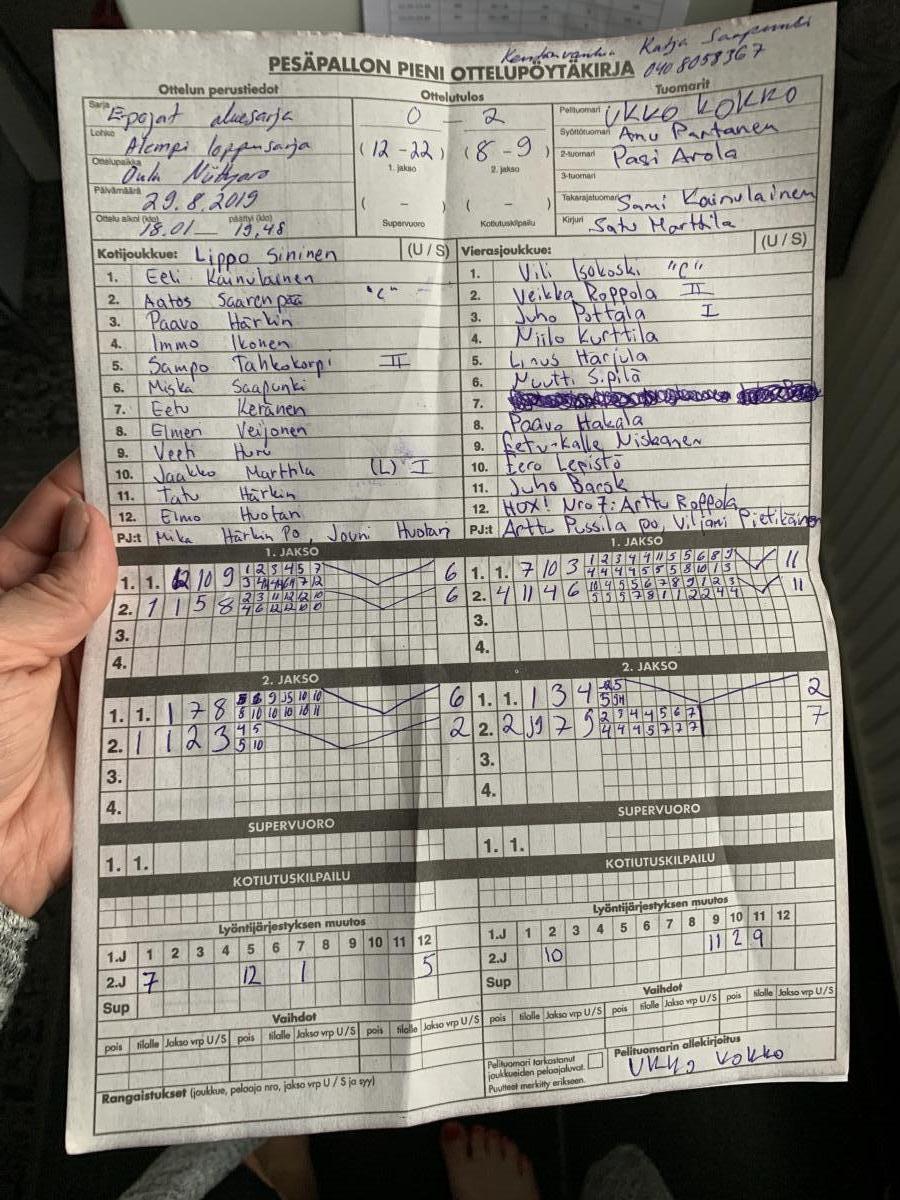 Katja Saapunki
PESÄPALLON PIENI OTTELUPÖYTÄKIRJA 040 8058367
Ottelun perustiedot Ottelutulos Tuomarit
Sarja E pojat aluesarja 0 – 2 Pelituomari UKKO KOKKO
Lohko Alempi loppusarja (12 – 22) (8 – 9) Syöttötuomari Anu Partanen
1. jakso 2. jakso 2-tuomari Pasi Arola
Ottelupaikka Oulu 3-tuomari
Päivämäärä 29.8.2019 ( – ) ( – ) Takarajatuomari Sami Kainulainen
Ottelu alkoi (klo) 18.01 — päättyi (klo) 19.48 Supervuoro Kotiutuskilpailu Kirjuri Satu Marttila
Kotijoukkue: Lippo Sininen (U / S) Vierasjoukkue: (U / S)
1. Eeli Kainulainen 1. Vili Isokoski "C"
2. Aatos Saarenpää "C" 2. Veikka Roppola II
3. Paavo Härkin 3. Juho Pottala I
4. Immo Ikonen 4. Niilo Kurttila
5. Sampo Tahkokorpi II 5. Linus Harjula
6. Miska Saapunki 6. Nuutti Sipilä
7. Eetu Keränen 7.
8. Elmeri Veijonen 8. Paavo Hakala
9. Veeti Huru 9. Eetu-Kalle Niskanen
10. Jaakko Marttila (L) I 10. Eero Lepistö
11. Tatu Härkin 11. Juho Barck
12. Elmo Huotari 12. HOX! Nro 7: Arttu Roppola
PJ:t Mika Härkin PO, Jouni Huotari PJ:t Arttu Pussila po, Viljami Pietikäinen
1. JAKSO 1. JAKSO
1. 1. 12 10 9 1 2 3 4 5 7 6 1. 1. 7 10 3 1 2 3 4 4 11 5 5 6 8 9 11
4 4 4 5 5 5 8 10 1 3
2. 1 1 5 8 2 3 11 12 12 10 6 2. 4 11 4 6 10 4 5 5 6 7 8 9 1 2 3 11
4 6 12 12 10 10 5 5 5 7 8 1 1 2 2 4 4
3. 3.
4. 4.
2. JAKSO 2. JAKSO
1. 1. 1 7 8 6 1. 1. 1 3 4 2
8 10 10 10 10 11
2. 1 1 2 3 4 5 2 2. 2 9 7 5 2 3 4 4 5 6 7 7
5 10 4 4 4 5 7 7 7
3. 3.
4. 4.
SUPERVUORO SUPERVUORO
1. 1. 1. 1.
KOTIUTUSKILPAILU KOTIUTUSKILPAILU
Lyöntijärjestyksen muutos Lyöntijärjestyksen muutos
1.J 1 2 3 4 5 6 7 8 9 10 11 12 1.J 1 2 3 4 5 6 7 8 9 10 11 12
2.J 7 12 1 5 2.J 10 11 2 9
Sup Sup
Vaihdot Vaihdot
pois tilalle Jakso vrp U / S pois tilalle Jakso vrp U / S pois tilalle Jakso vrp U / S pois tilalle Jakso vrp U/S pois tilalle Jakso vrp U/S pois tilalle Jakso vrp U/S
Pelituomari tarkastanut
joukkueiden pelaajaluvat.
Puutteet merkitty erikseen.
Pelituomarin allekirjoitus
Ukko Kokko
Rangaistukset (joukkue, pelaaja nro, jakso vrp U / S ja syy)